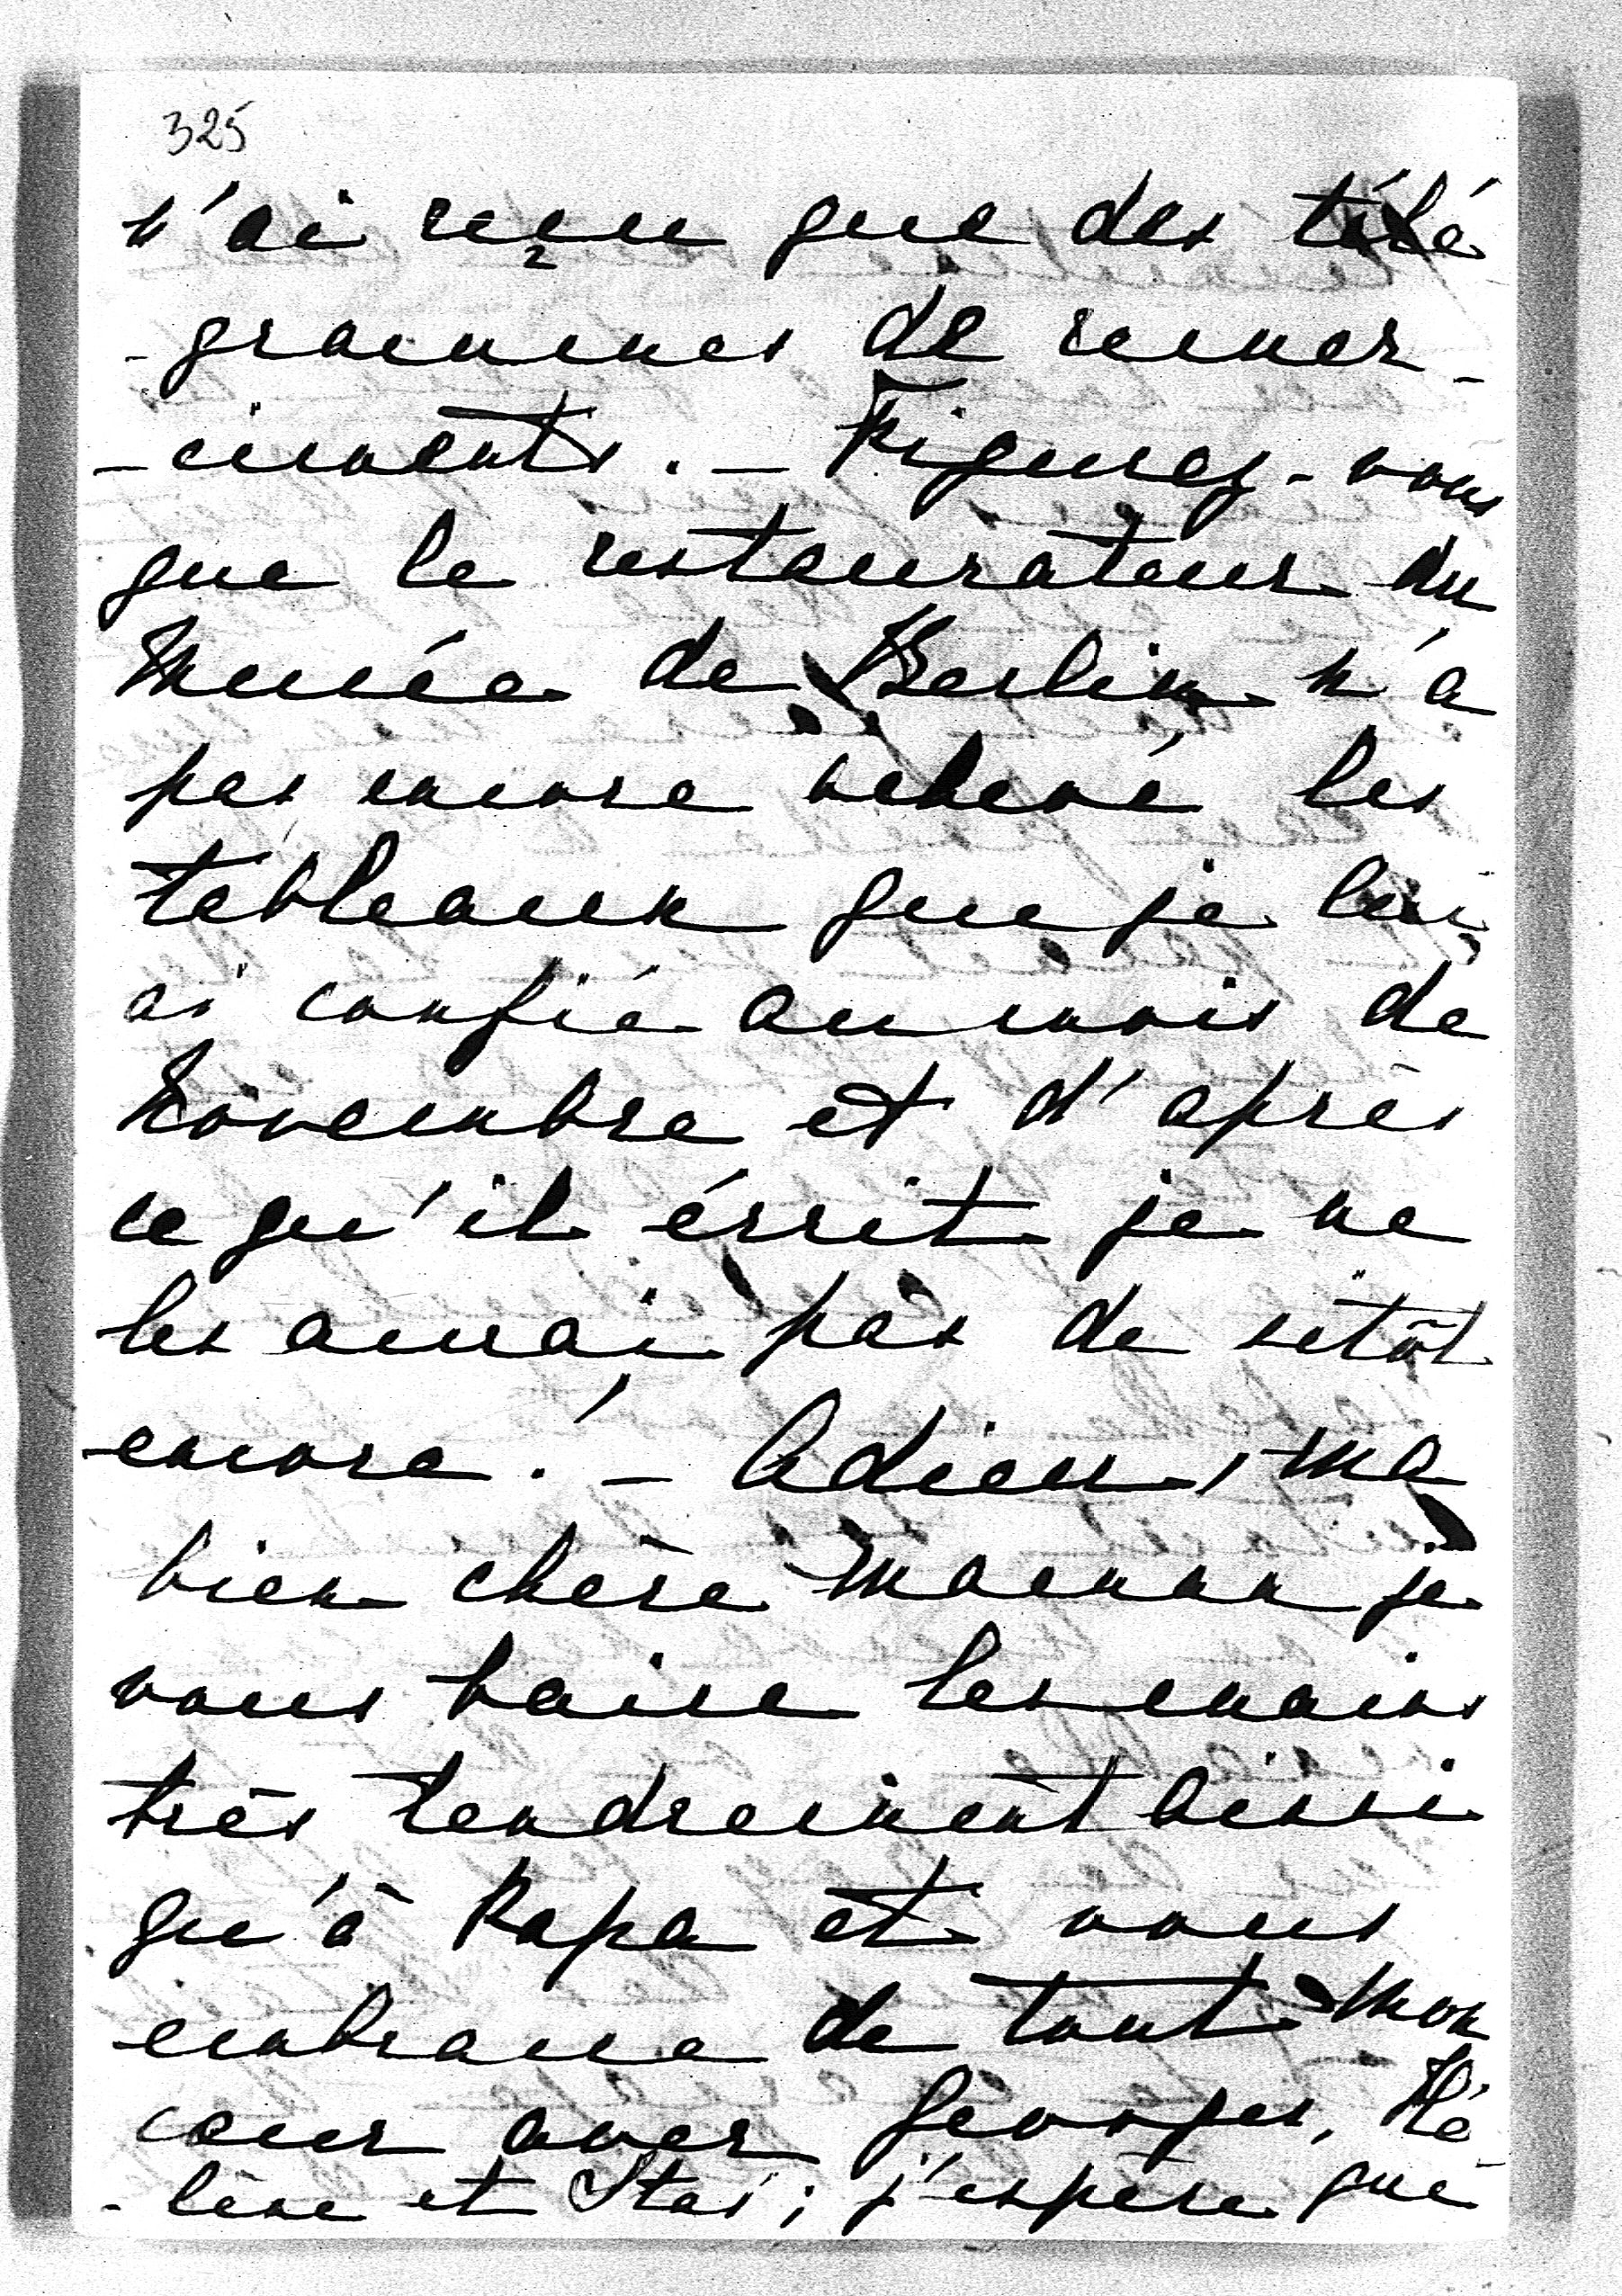 325
n'ai reçu que des télé
-grammes de remer-
-ciments. - Figurez-vous
que le restaurateur du
Musée de Berlin n'a
pas encore achevé les
tableaux que je lui
ai confié au mois de
Novembre et d'après
ce qu'il écrit je ne
les aurai pas de sitôt
encore. - Adieu, ma
bien chère Maman je
vous baise les mains
très tendrement ainsi
qu'à Papa et vous
embrasse de tout mon
coeur avec Georges, Hé-
-lène et Stas; j'espère que